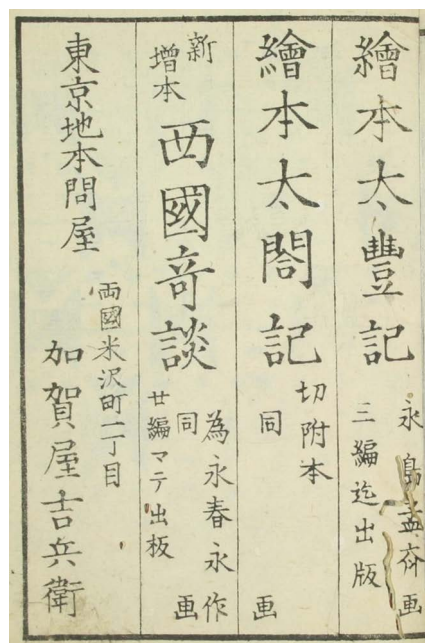 繪本太豐記
永島孟斎画
三編迄出版
繪本太閤記
切附本
同画
新増本
西國竒談
為永春水作
同画
廿編マテ出板
東京地本問屋
両國米沢町二丁目
加賀屋吉兵衛